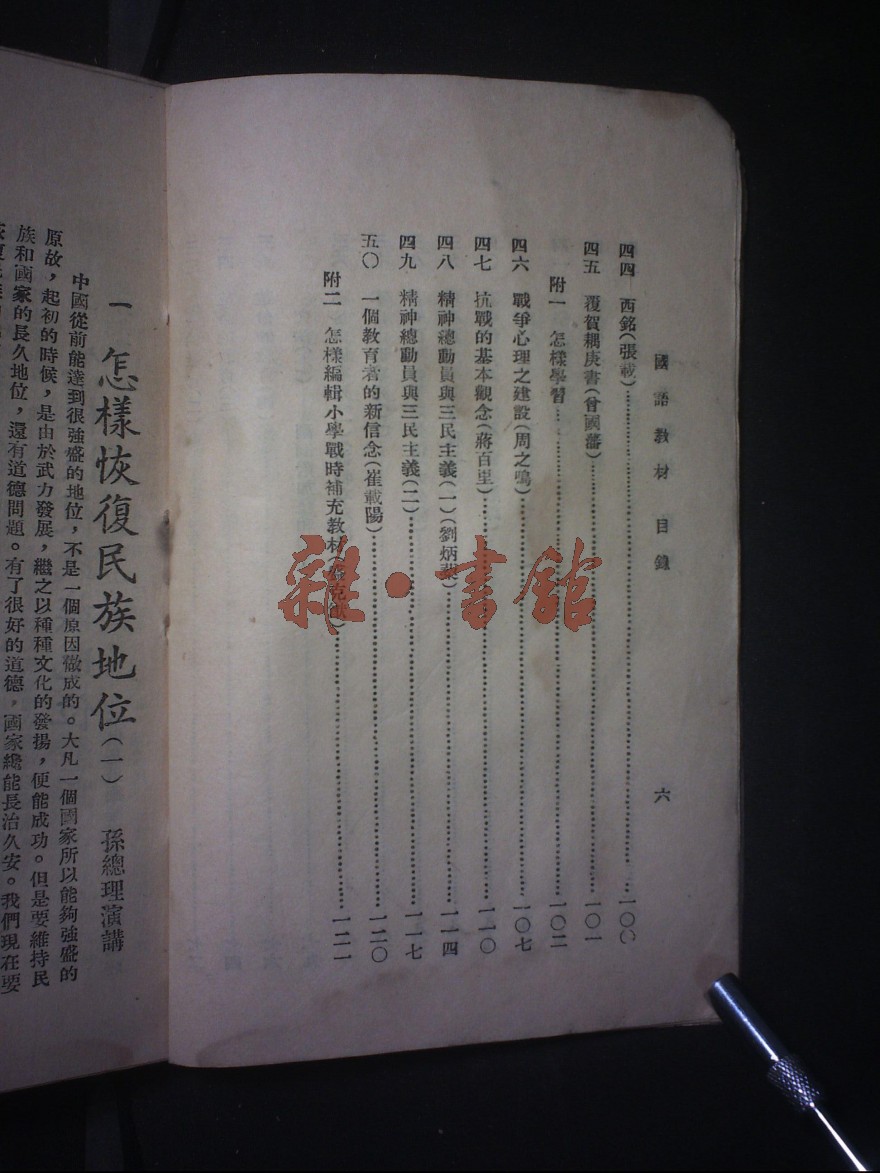 國語教材 目錄 六
四四 西銘(張載)……一〇〇
四五 覆賀耦庚書(曾國藩)……一〇一
附一 怎樣學習……一〇二
四六 戰爭心理之建設(周之鳴)……一〇七
四七 抗戰的基本觀念(蔣百里)……一一〇
四八 精神總動員與三民主義(一)(劉炳藜)……一一四
四九 精神總動員與三民主義(二)……一一七
五〇 一個教育者的新信念(崔載陽)……一二〇
附二 怎樣編輯小學戰時補充教材……一二一
雜·書館
一 怎樣恢復民族地位(一) 孫總理演講
中國從前能達到很強盛的地位,不是一個原因做成的。大凡一個國家所以能夠強盛的
原故,起初的時候,是由於武力發展,繼之以種種文化的發揚,便能成功。但是要維持民
族和國家的長久地位,還有道德問題。有了很好的道德,國家纔能長治久安。我們現在要